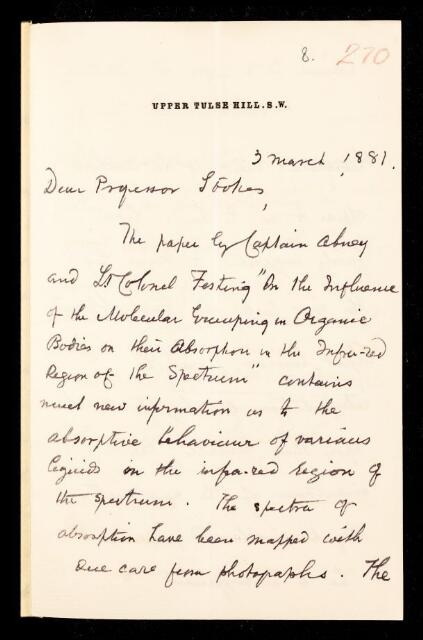 8. 270
UPPER TULSE HILL. S.W.
3 March, 1881.
Dear Professor Stokes,
The paper by Captain Abney
and Lt Colonel Festing "On the Influence
of the Molecular Grouping in Organic
Bodies on their Absorption in the Infra-red
Region of the Spectrum" contains
much new information as to the
absorptive behaviour of various
liquids in the infra-red region of
the spectrum. The spectra of
absorption have been mapped with
due care from photographs. The